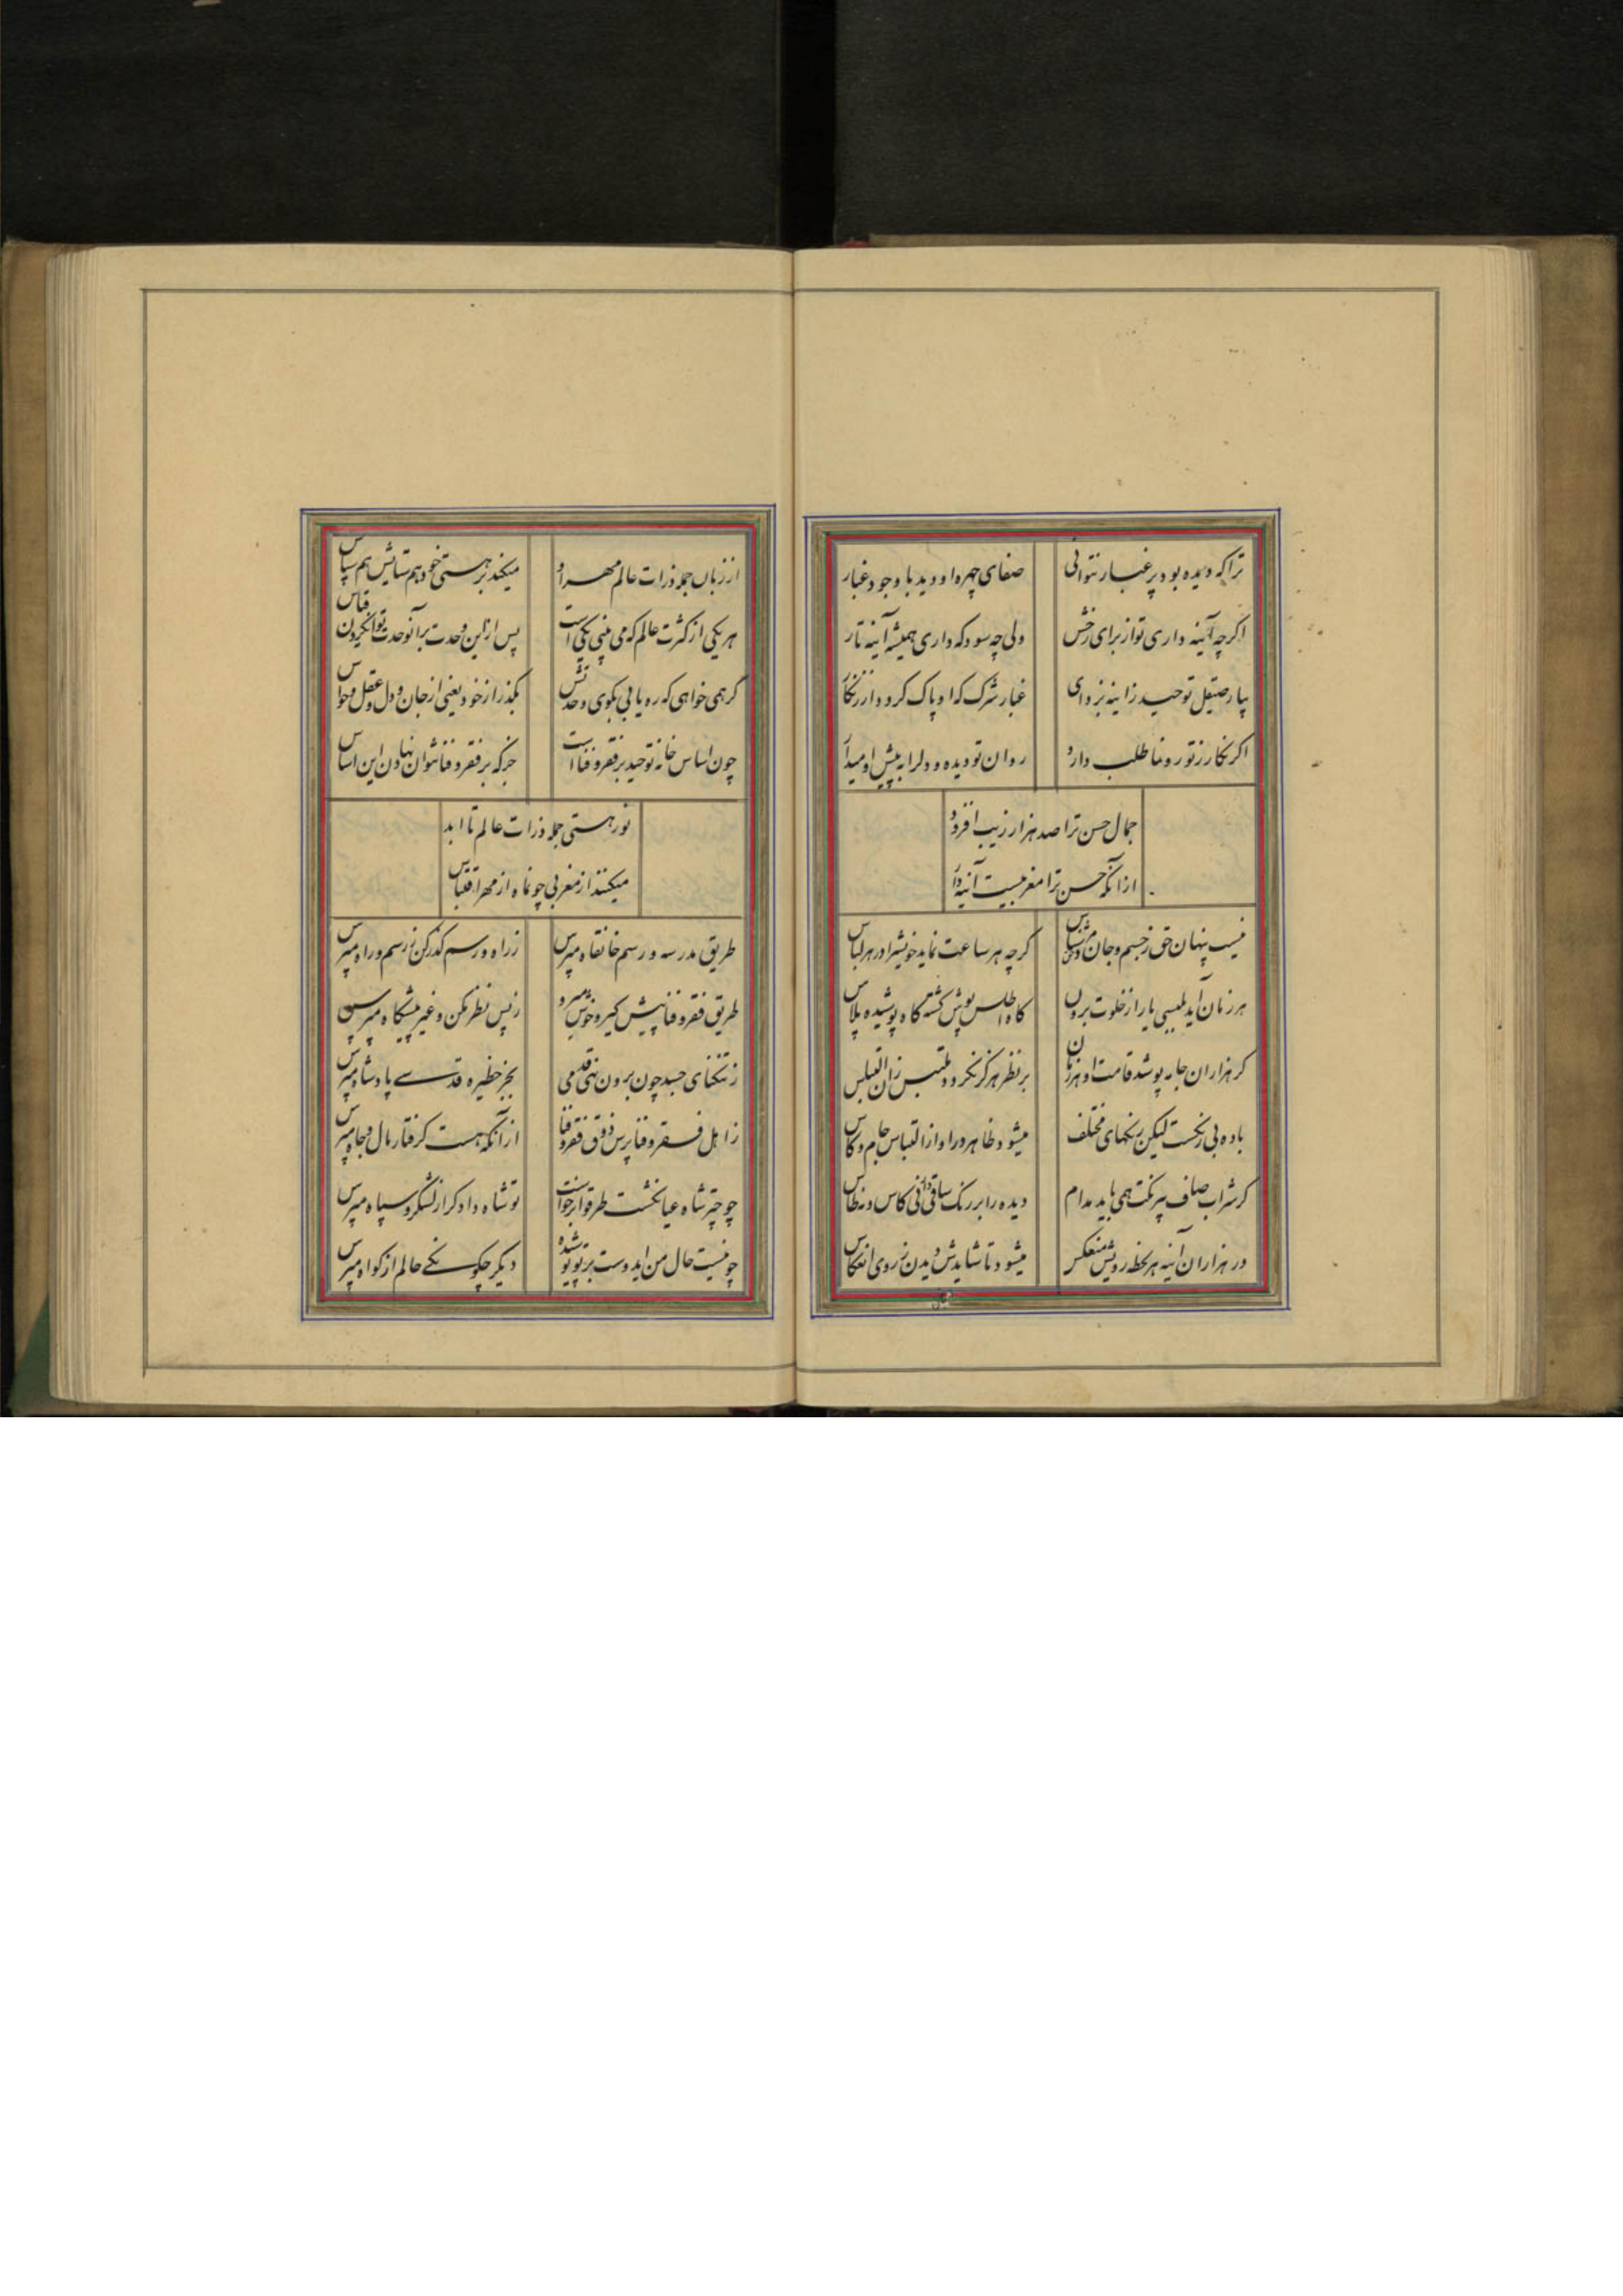 تراکه دیده بود پر غبار نتوانی
صفای چهره او دید با وجود غبار
اکرچه آینه داری تو از برای رخش
ولی چه سود که داری همیشه آینه تار
بیا بصیقل توحید ز اینه بزدای
غبار شرک که او پاک کردد از زنکار
اکر نکار ز تو رونما طلب دارد
روان تو دیده و دلرا به پیش او میدار
جمال حسن ترا صد هزار زیب افزود
از آنکه حسن ترا مغربیست آینه دار
نیست پنهان حق ز چشم و جان
کرچه هر ساعت نماید خویشرا در هر لباس
هر زمان آید بلبسی یار از خلوت برون
کاه اطلس پوش کشته کاه پوشیده پلاس
کر هزاران جامه پوشد قامت او هر زمان
بر نظر هرکز نکردد ملتبس زان التباس
باده بی رنکست لیکن رنکهای مختلف
میشود ظاهر در او از التباس جام و کاس
کر شراب صاف بیرنکت همی باید مدام
دیده را بر رنک ساقی
در هزاران آینه هر لحظه رویش منعکس
میشود تا شایدش دیدن ز روی انعکاس
از زبان جمله ذرات عالم مهر او
میکند بر هستی خود هم ستایش هم سپاس
هر یکی از کثرت عالم که می بینی یکی است
پس ازین وحدت برآنوحدت توان کردن قیاس
کر همی خواهی که ره یابی بکوی وحدتش
بکذر از خود یعنی از جان و دل و عقل و حواس
چون اساس خانه توحید بر فقر و فنا است
جز که بر فقر و فنا نتوان نهادن این اساس
نور هستی جمله ذرات عالم تا ابد
میکنند از مغربی چو نماه از مهر اقتباس
طریق مدرسه و رسم خانقاه مپرس
ز راه و رسم کذر کن ز رسم و راه مپرس
طریق فقر و فنا پیش کیر و خوش میرو
ز پس نظر مکن و غیر پیشکاه مپرس
ز تنکنای جسد چون برون نهی قدمی
بجز حظیره قدسی پادشاه مپرس
ز اهل فقر و فنا پرس ذوق فقر و فنا
از آنکه هست کرفتار مال و جاه مپرس
چو چتر شاه عیانکشت طرقوا برخواست
تو شاه وادکر از لشکر و سپاه مپرس
چو نیست حال من ایدوست بر تو پوشیده
دیکر چکونکی حالم از کواه مپرس